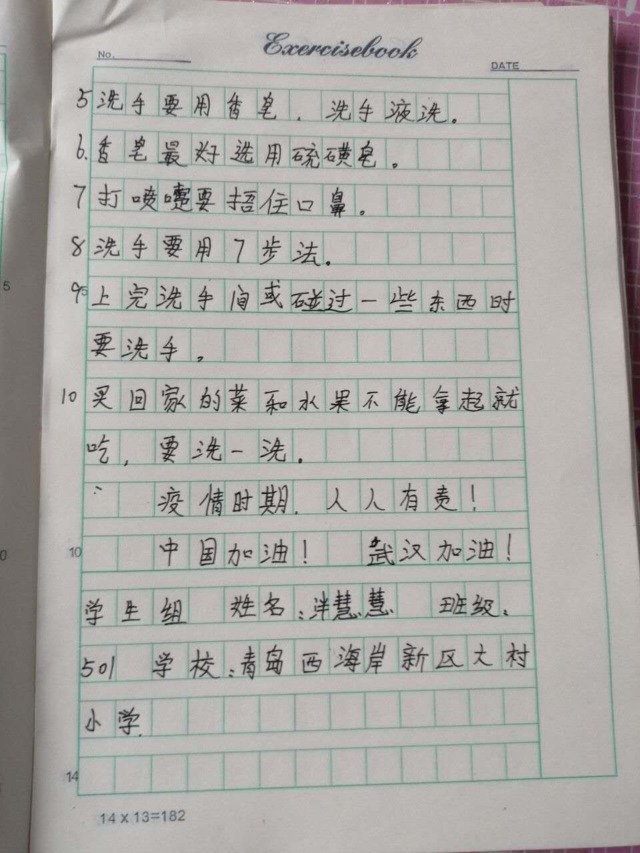 No.
Exercisebook
DATE
5 洗手要用香皂、洗手液洗。
6. 香皂最好选用硫磺皂。
7 打喷嚏要捂住口鼻。
8 洗手要用7步法。
5
9 上完洗手间或碰过一些东西时
要洗手。
10 买回家的菜和水果不能拿起就
吃，要洗一洗。
疫情时期，人人有责！
10 中国加油！ 武汉加油！
学生组 姓名：泮慧慧 班级：
501 学校：青岛西海岸新区大村
小学
14
14 x 13=182